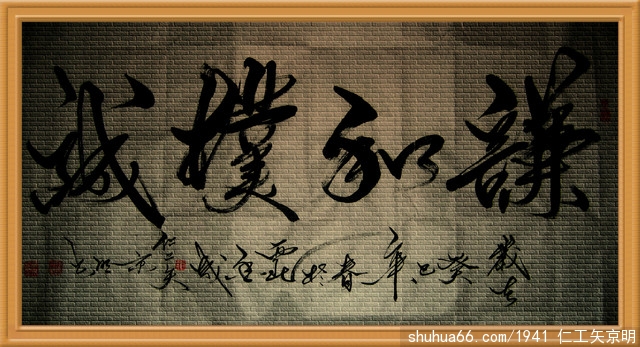 謙和樸誠
歲在癸巳年春於
shuhua66.com/1941 仁工矢京明